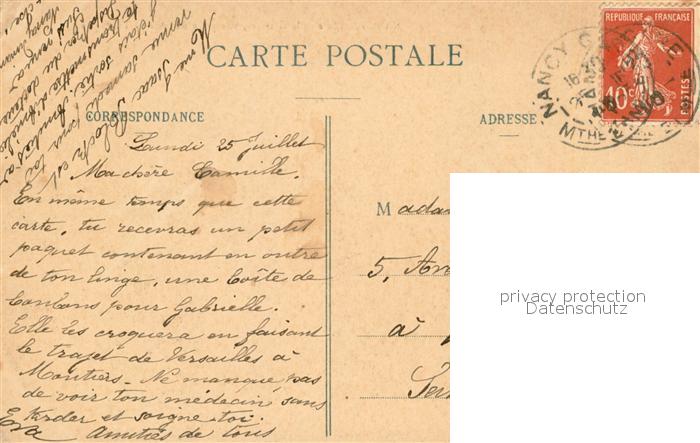 CARTE POSTALE
RÉPUBLIQUE FRANÇAISE
10c
POSTES
NANCY
CORRESPONDANCE
ADRESSE
Lundi 25 Juillet
Ma chère Camille.
En même temps que cette
carte, tu recevras un petit
paquet contenant en outre
de ton linge, une boîte de
bonbons pour Gabrielle.
Elle les croquera en faisant
le trajet de Versailles à
Moutiers. Ne manque pas
de voir ton médecin sans
tarder et soigne-toi.
Eva Amitiés de tous
Mme Isaac Bloch est
venue samedi
Madam
5, Av
à
privacy protection
Datenschutz